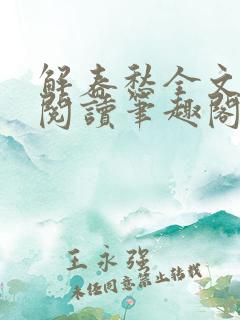 解春愁全文
閱讀筆趣閣
王永强
未经同意禁止转载